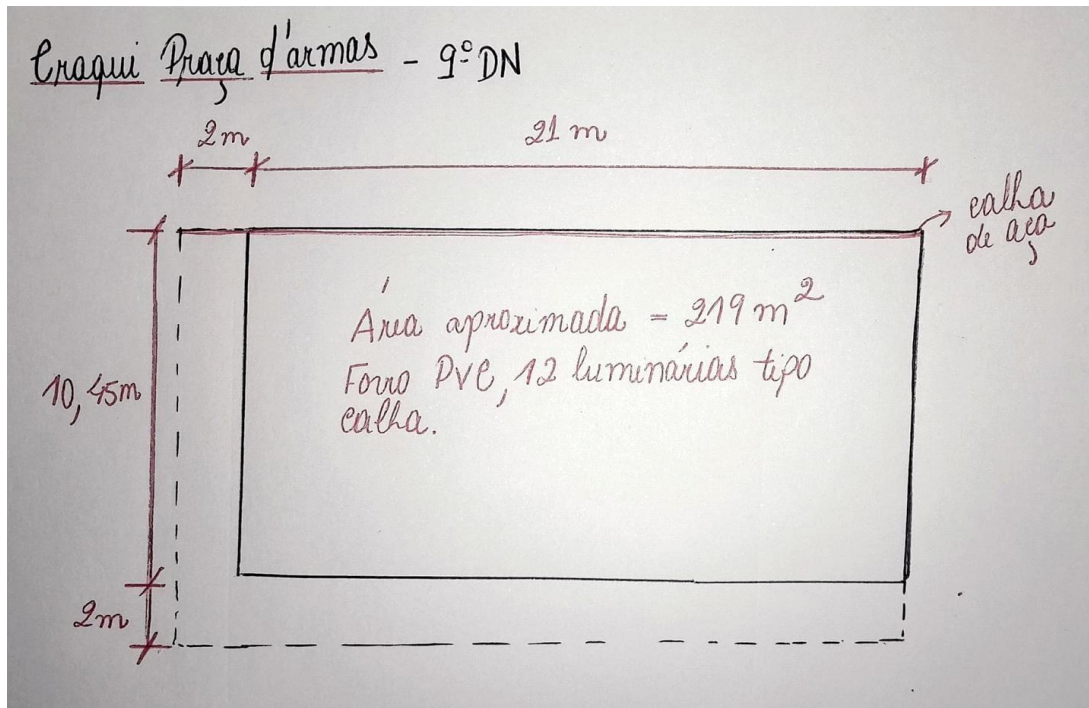 Craqui Praça d'armas - 9º DN
2m
21 m
calha
de aço
Área aproximada = 219 m²
Forro PVC, 12 luminárias tipo
calha.
10,45m
2m